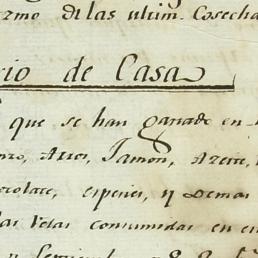 rmo de las ultim. Cosecha
rio de Casa
que se han gastado en
Arros, Jamon, Azeite,
ocolate, especies, y Demas
las Velas consumidas en